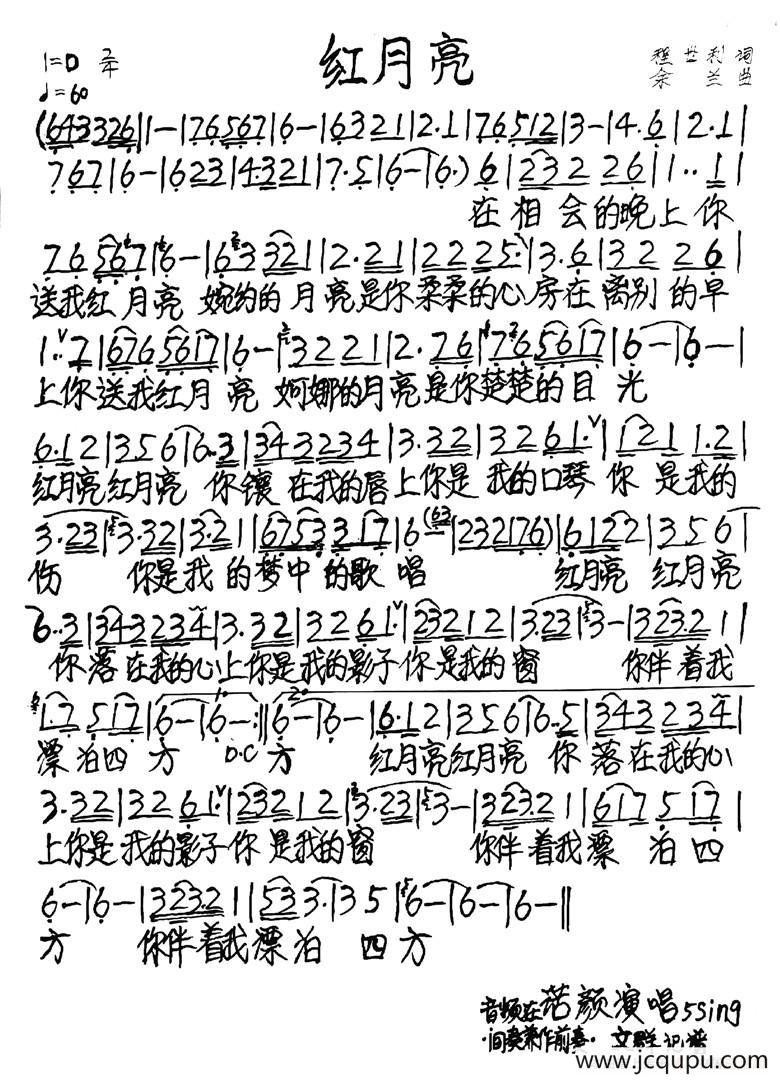 红月亮
1=D 2/4
♩=60
程世利 词
余兰 曲
(643326|1-|76567|6-|6321|2·1|76512|3-|4·6|2·1|
767|6-|623|4321|7·5|6-|6·)6|232 26|1··1|
在相会的晚上你
76567|6-|63321|2·21|2225·|3·6|32 26|
送我红月亮 婉约的月亮是你柔柔的心房在离别的早
1··7|676 5617|6-|3221|2·76|76 5617|6-|6-|
上你送我红月亮 婀娜的月亮是你楚楚的目光
6·12|356|6··3|343234|3·32|3261·|121 1·2|
红月亮红月亮 你镶在我的唇上你是我的口琴你是我的
3·23|3·32|3·21|6753317|6(63|232176)|6122|356|
伤 你是我的梦中的歌唱 红月亮 红月亮
6··3|343234|3·32|3261·|23212|3·23|3-|323·21|
你落在我的心上你是我的影子你是我的窗 你伴着我
1·7 517|6-|6-:‖6-|6-|6·12|356|6··5|343234|
漂泊四方 D.C 方 红月亮红月亮 你落在我的心
3·32|3261·|23212|3·23|3-|323·21|617 517|
上你是我的影子你是我的窗 你伴着我漂泊四
6-|6-|323·21|533·|35|6-|6-|6-‖
方 你伴着我漂泊 四方
音频在诺颜演唱5Sing
·间奏兼作前奏· 文群记谱
www.jcqupu.com